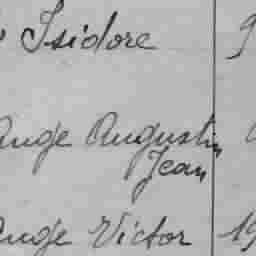 Isidore
Ange Augustin
Jean
Ange Victor 19